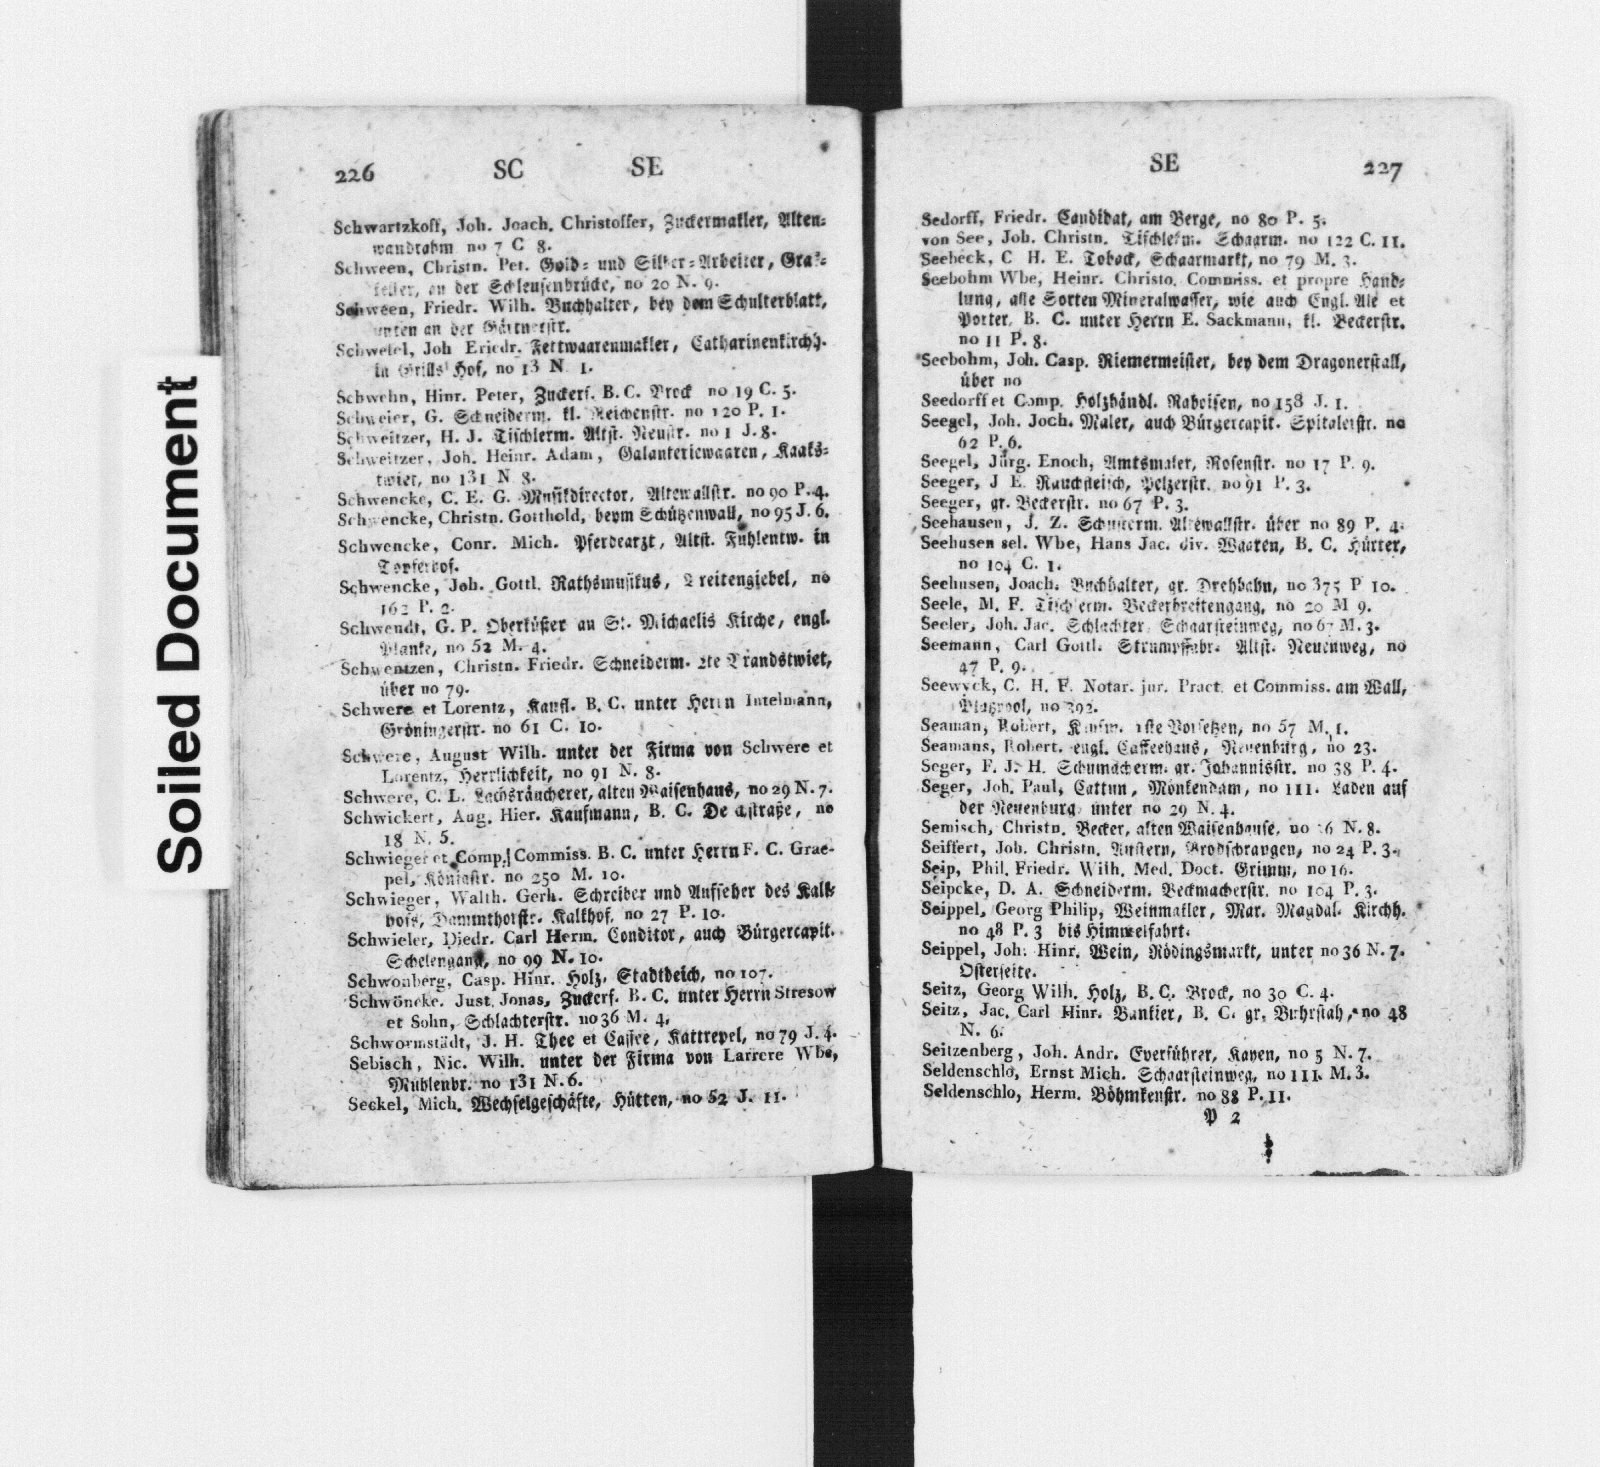 Soiled Document
226 SC SE
Schwartzkoff, Joh. Joach. Christoffer, Zuckermakler, Alten-
wandrahm no 7 C 8.
Schween, Christn. Pet. Gold- und Silber-Arbeiter, Gras-
keller, an der Schleusenbrücke, no 20 N. 9.
Schween, Friedr. Wilh. Buchhalter, bey dem Schulterblatt,
unten an der Gärtnerstr.
Schwefel, Joh Friedr. Fettwaarenmakler, Catharinenkirchh.
in Grills Hof, no 13 N 1.
Schwehn, Hinr. Peter, Zuckerf. B. C. Brock no 19 C. 5.
Schweier, G. Schneiderm. kl. Reichenstr. no 120 P. 1.
Schweitzer, H. J. Tischlerm. Altst. Neustr. no 1 J. 8.
Schweitzer, Joh. Heinr. Adam, Galanteriewaaren, Kaaks-
twiet, no 131 N 8.
Schwencke, C. E. G. Musikdirector, Altewallstr. no 90 P. 4.
Schwencke, Christn. Gotthold, beym Schützenwall, no 95 J. 6.
Schwencke, Conr. Mich. Pferdearzt, Altst. Fuhlentw. in
Töpferhof.
Schwencke, Joh. Gottl. Rathsmusikus, Breitengiebel, no
162 P. 2.
Schwendt, G. P. Oberküster an St. Michaelis Kirche, engl.
Planke, no 52 M. 4.
Schwentzen, Christn. Friedr. Schneiderm. 2te Brandstwiet,
über no 79.
Schwere et Lorentz, Kaufl. B. C. unter Herrn Intelmann,
Gröningerstr. no 61 C. 10.
Schwere, August Wilh. unter der Firma von Schwere et
Lorentz, Herrlichkeit, no 91 N. 8.
Schwere, C. L. Lachsräucherer, alten Waisenhaus, no 29 N. 7.
Schwickert, Aug. Hier. Kaufmann, B. C. Deichstraße, no
18 N. 5.
Schwieger et Comp. Commiss. B. C. unter Herrn F. C. Grae-
pel, Königstr. no 250 M. 10.
Schwieger, Walth. Gerh. Schreiber und Aufseher des Kalk-
hofs, Dammthorstr. Kalkhof, no 27 P. 10.
Schwieler, Diedr. Carl Herm. Conditor, auch Bürgercapit.
Schelengang, no 99 N. 10.
Schwonberg, Casp. Hinr. Holz, Stadtdeich, no 107.
Schwöncke, Just. Jonas, Zuckerf. B. C. unter Herrn Stresow
et Sohn, Schlachterstr. no 36 M. 4.
Schwormstädt, J. H. Thee et Caffee, Kattrepel, no 79 J. 4.
Sebisch, Nic. Wilh. unter der Firma von Larrere Wbe,
Mühlenbr. no 131 N. 6.
Seckel, Mich. Wechselgeschäfte, Hütten, no 52 J. 11.
SE 227
Sedorff, Friedr. Candidat, am Berge, no 80 P. 5.
von See, Joh. Christn. Tischlerm. Schaarm. no 122 C. 11.
Seebeck, C H. E. Toback, Schaarmarkt, no 79 M. 3.
Seebohm Wbe, Heinr. Christo. Commiss. et propre Hand-
lung, alle Sorten Mineralwasser, wie auch Engl. Ale et
Porter, B. C. unter Herrn E. Sackmann, kl. Beckerstr.
no 11 P. 8.
Seebohm, Joh. Casp. Riemermeister, bey dem Dragonerstall,
über no
Seedorff et Comp. Holzhändl. Raboisen, no 158 J. 1.
Seegel, Joh. Joch. Maler, auch Bürgercapit. Spitalerstr. no
62 P. 6.
Seegel, Jürg. Enoch, Amtsmaler, Rosenstr. no 17 P. 9.
Seeger, J E. Rauchfleisch, Pelzerstr. no 91 P. 3.
Seeger, gr. Beckerstr. no 67 P. 3.
Seehausen, J. Z. Schusterm. Altewallstr. über no 89 P. 4.
Seehusen sel. Wbe, Hans Jac. div. Waaren, B. C. Hürter,
no 104 C. 1.
Seehusen, Joach. Buchhalter, gr. Drehbahn, no 375 P 10.
Seele, M. F. Tischlerm. Beckerbreitengang, no 20 M 9.
Seeler, Joh. Jac. Schlachter, Schaarsteinweg, no 67 M. 3.
Seemann, Carl Gottl. Strumpffabr. Altst. Neuenweg, no
47 P. 9.
Seewyck, C. H. F. Notar. jur. Pract. et Commiss. am Wall,
no 392.
Seaman, Robert, Kaufm. 1ste Vorsetzen, no 57 M. 1.
Seamans, Robert. engl. Caffeehaus, Neuenburg, no 23.
Seger, F. J. H. Schumacherm. gr. Johannisstr. no 38 P. 4.
Seger, Joh. Paul, Cattun, Mönkendam, no 111. Laden auf
der Neuenburg unter no 29 N. 4.
Semisch, Christn. Becker, alten Waisenhause, no 6 N. 8.
Seiffert, Joh. Christn. Austern, Brodschrangen, no 24 P. 3.
Seip, Phil. Friedr. Wilh. Med. Doct. Grimm, no 16.
Seipcke, D. A. Schneiderm. Beckmacherstr. no 104 P. 3.
Seippel, Georg Philip, Weinmakler, Mar. Magdal. Kirchh.
no 48 P. 3 bis Himmelfahrt.
Seippel, Joh. Hinr. Wein, Rödingsmarkt, unter no 36 N. 7.
Osterseite.
Seitz, Georg Wilh. Holz, B. C. Brock, no 30 C. 4.
Seitz, Jac. Carl Hinr. Bankier, B. C. gr. Burstah, no 48
N. 6.
Seitzenberg, Joh. Andr. Everführer, Kayen, no 5 N. 7.
Seldenschlo, Ernst Mich. Schaarsteinweg, no 111. M. 3.
Seldenschlo, Herm. Böhmkenstr. no 88 P. 11.
P 2